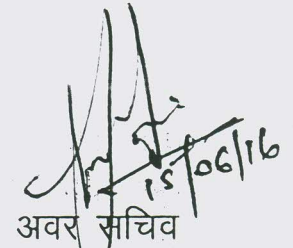 15/06/16
अवर सचिव